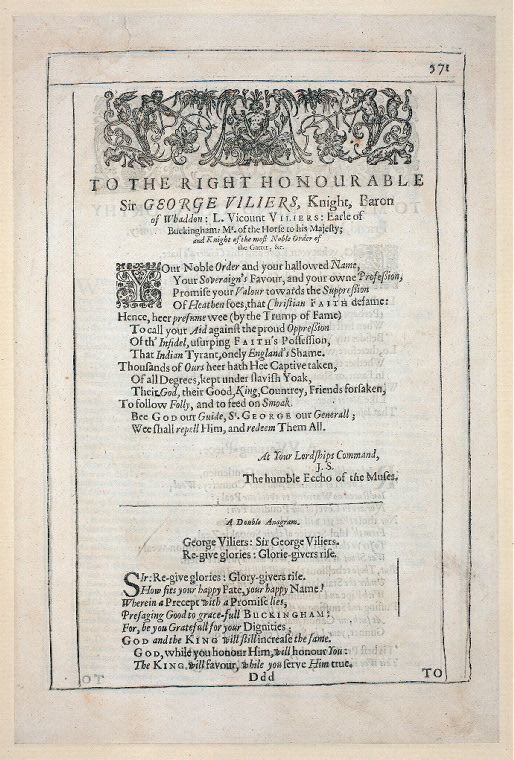 571
TO THE RIGHT HONOURABLE
Sir GEORGE VILIERS, Knight, Baron
of Whaddon: L. Vicount VILIERS: Earle of
Buckingham: Mr. of the Horse to his Majesty;
and Knight of the most Noble Order of
the Garter, &c.
YOur Noble Order and your hallowed Name,
Your Soveraign's Favour, and your owne Profeſſion,
Promiſe your Valour towards the Suppreſſion
Of Heathen foes, that Chriſtian FAITH defame:
Hence, heer preſume wee (by the Trump of Fame)
To call your Aid againſt the proud Oppreſſion
Of th' Infidel, uſurping FAITH's Poſſeſſion,
That Indian Tyrant, onely England's Shame.
Thouſands of Ours heer hath Hee Captive taken,
Of all Degrees, kept under ſlaviſh Yoak,
Their God, their Good King, Countrey, Friends forſaken,
To follow Folly, and to feed on Smoak.
Bee GOD our Guide, St. GEORGE our Generall;
Wee ſhall repell Him, and redeem Them All.
At Your Lordſhips Command,
J. S.
The humble Eccho of the Muſes.
A Double Anagram.
George Viliers: Sir George Viliers.
Re-give glories: Glorie-givers riſe.
SIr: Re-give glories: Glory-givers riſe.
How fits your happy Fate, your happy Name!
Wherein a Precept with a Promiſe lies,
Preſaging Good to grace-full BUCKINGHAM!
For, be you Gratefull for your Dignities;
GOD and the KING will ſtill increaſe the ſame.
GOD, while you honour Him, will honour You:
The KING will favour, while you ſerve Him true.
Ddd
TO